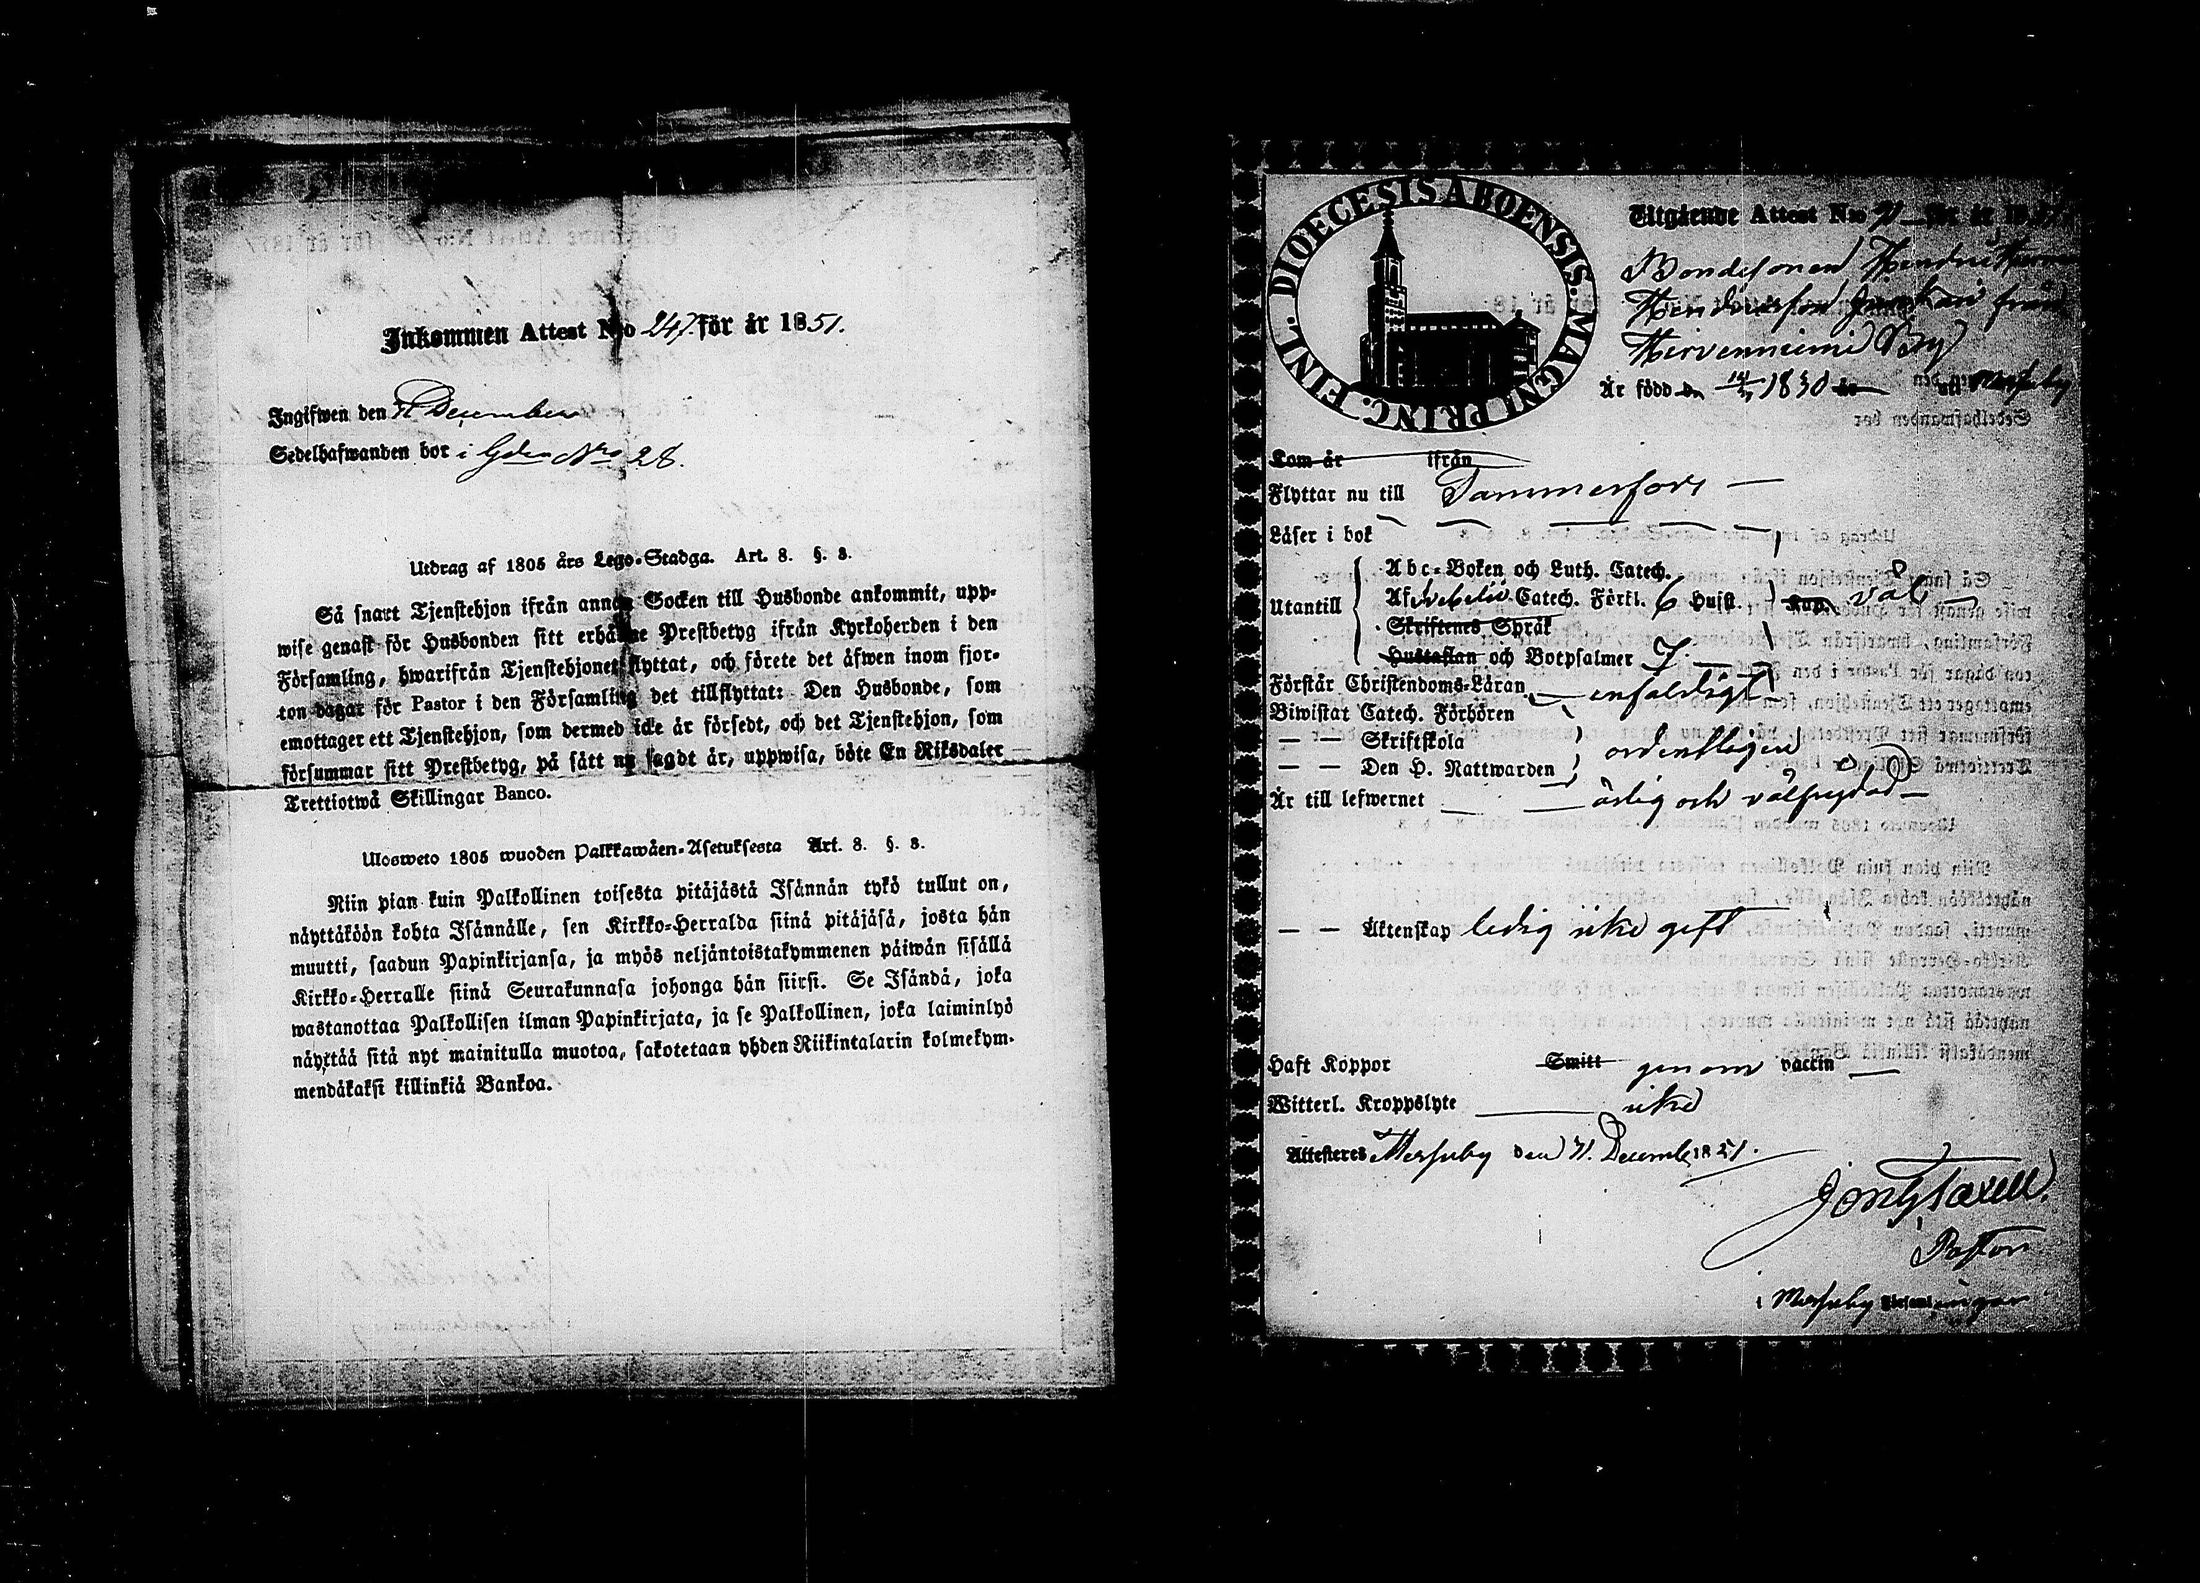 Inkommen Attest N:o 247. för år 1851.
Ingifwen den December
Sedelhafwanden bor i Gden Nro 28.
Utdrag af 1805 års Lego-Stadga. Art. 8. §. 3.
Så snart Tjenstehjon ifrån annan Socken till Husbonde ankommit, upp-
wise genast för Husbonden sitt erhållne Prestbetyg ifrån Kyrkoherden i den
Församling, hwarifrån Tjenstehjonet flyttat, och förete det äfwen inom fjor-
ton dagar för Pastor i den Församling det tillflyttat: Den Husbonde, som
emottager ett Tjenstehjon, som dermed icke är försedt, och det Tjenstehjon, som
försummar sitt Prestbetyg, på sätt nu sagdt är, uppwisa, böte En Riksdaler
Trettiotwå Skillingar Banco.
Ulosweto 1805 wuoden Palkkawäen-Asetuksesta Art. 8. §. 3.
Niin pian kuin Palkollinen toisesta pitäjästä Isännän tykö tullut on,
näyttäköön kohta Isännälle, sen Kirkko-Herralda siinä pitäjäsä, josta hän
muutti, saadun Papinkirjansa, ja myös neljäntoistakymmenen päiwän sisällä
Kirkko-Herralle siinä Seurakunnasa johonga hän siirsi. Se Isändä, joka
wastanottaa Palkollisen ilman Papinkirjata, ja se Palkollinen, joka laiminlyö
näyttää sitä nyt mainitulla muotoa, sakotetaan yhden Riikintalarin kolmekym-
mendäkaksi killinkiä Bankoa.
DIOECESIS ABOENSIS. MAGNI PRINC. FINL.
Utgående Attest N:o för år 1851
Bondesonen
Hendricsson från
Hirvenniemi By
Är född d. 1830 år
Kom år ifrån
Flyttar nu till Tammerfors
Läser i bok
Utantill
Abc-Boken och Luth. Catech.
Af Catech. Förkl. 6 Hufst. väl
Skriftenes Språk
Hustaflan och Botpsalmer 7
Förstår Christendoms-Läran enfaldigt
Biwistat Catech. Förhören
— — Skriftskola ordentligen
— — Den H. Nattwarden
Är till lefwernet ärlig och välfrejdad
— — Äktenskap ledig icke gift
Haft Koppor Smitt genom vaccin
Witterl. Kroppslyte icke
Attesteres den 31. Decemb. 1851.
Pastor
i